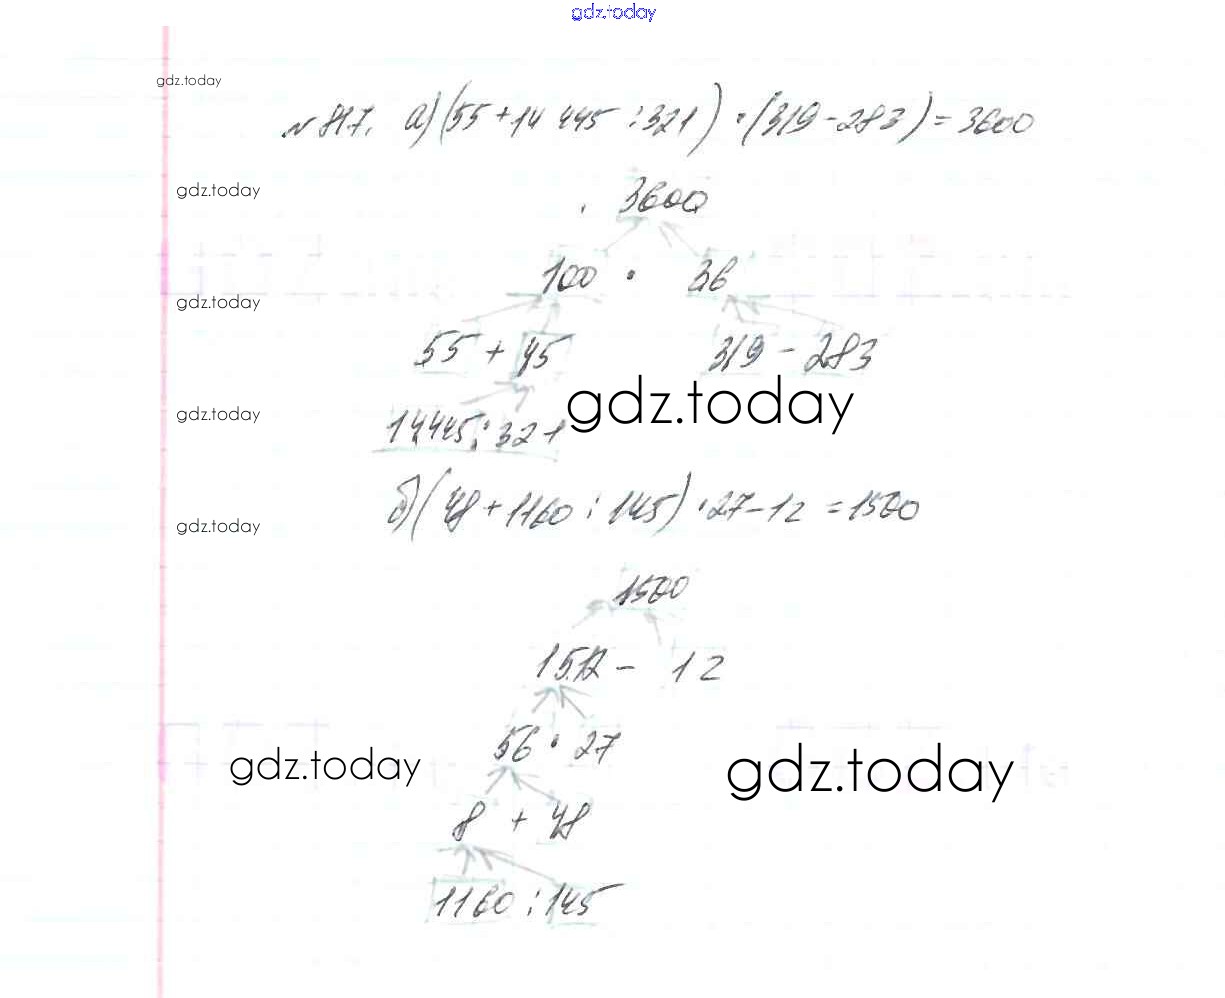 gdz.today
gdz.today
№ 817. а) (55 + 14 445 : 321) · (319 - 283) = 3600
gdz.today
3600
100 · 36
gdz.today
55 + 45 319 - 283
gdz.today
gdz.today
14445 : 321
б) (48 + 1160 : 145) · 27 - 12 = 1500
gdz.today
1500
1512 - 12
56 · 27
gdz.today
gdz.today
8 + 48
1160 : 145